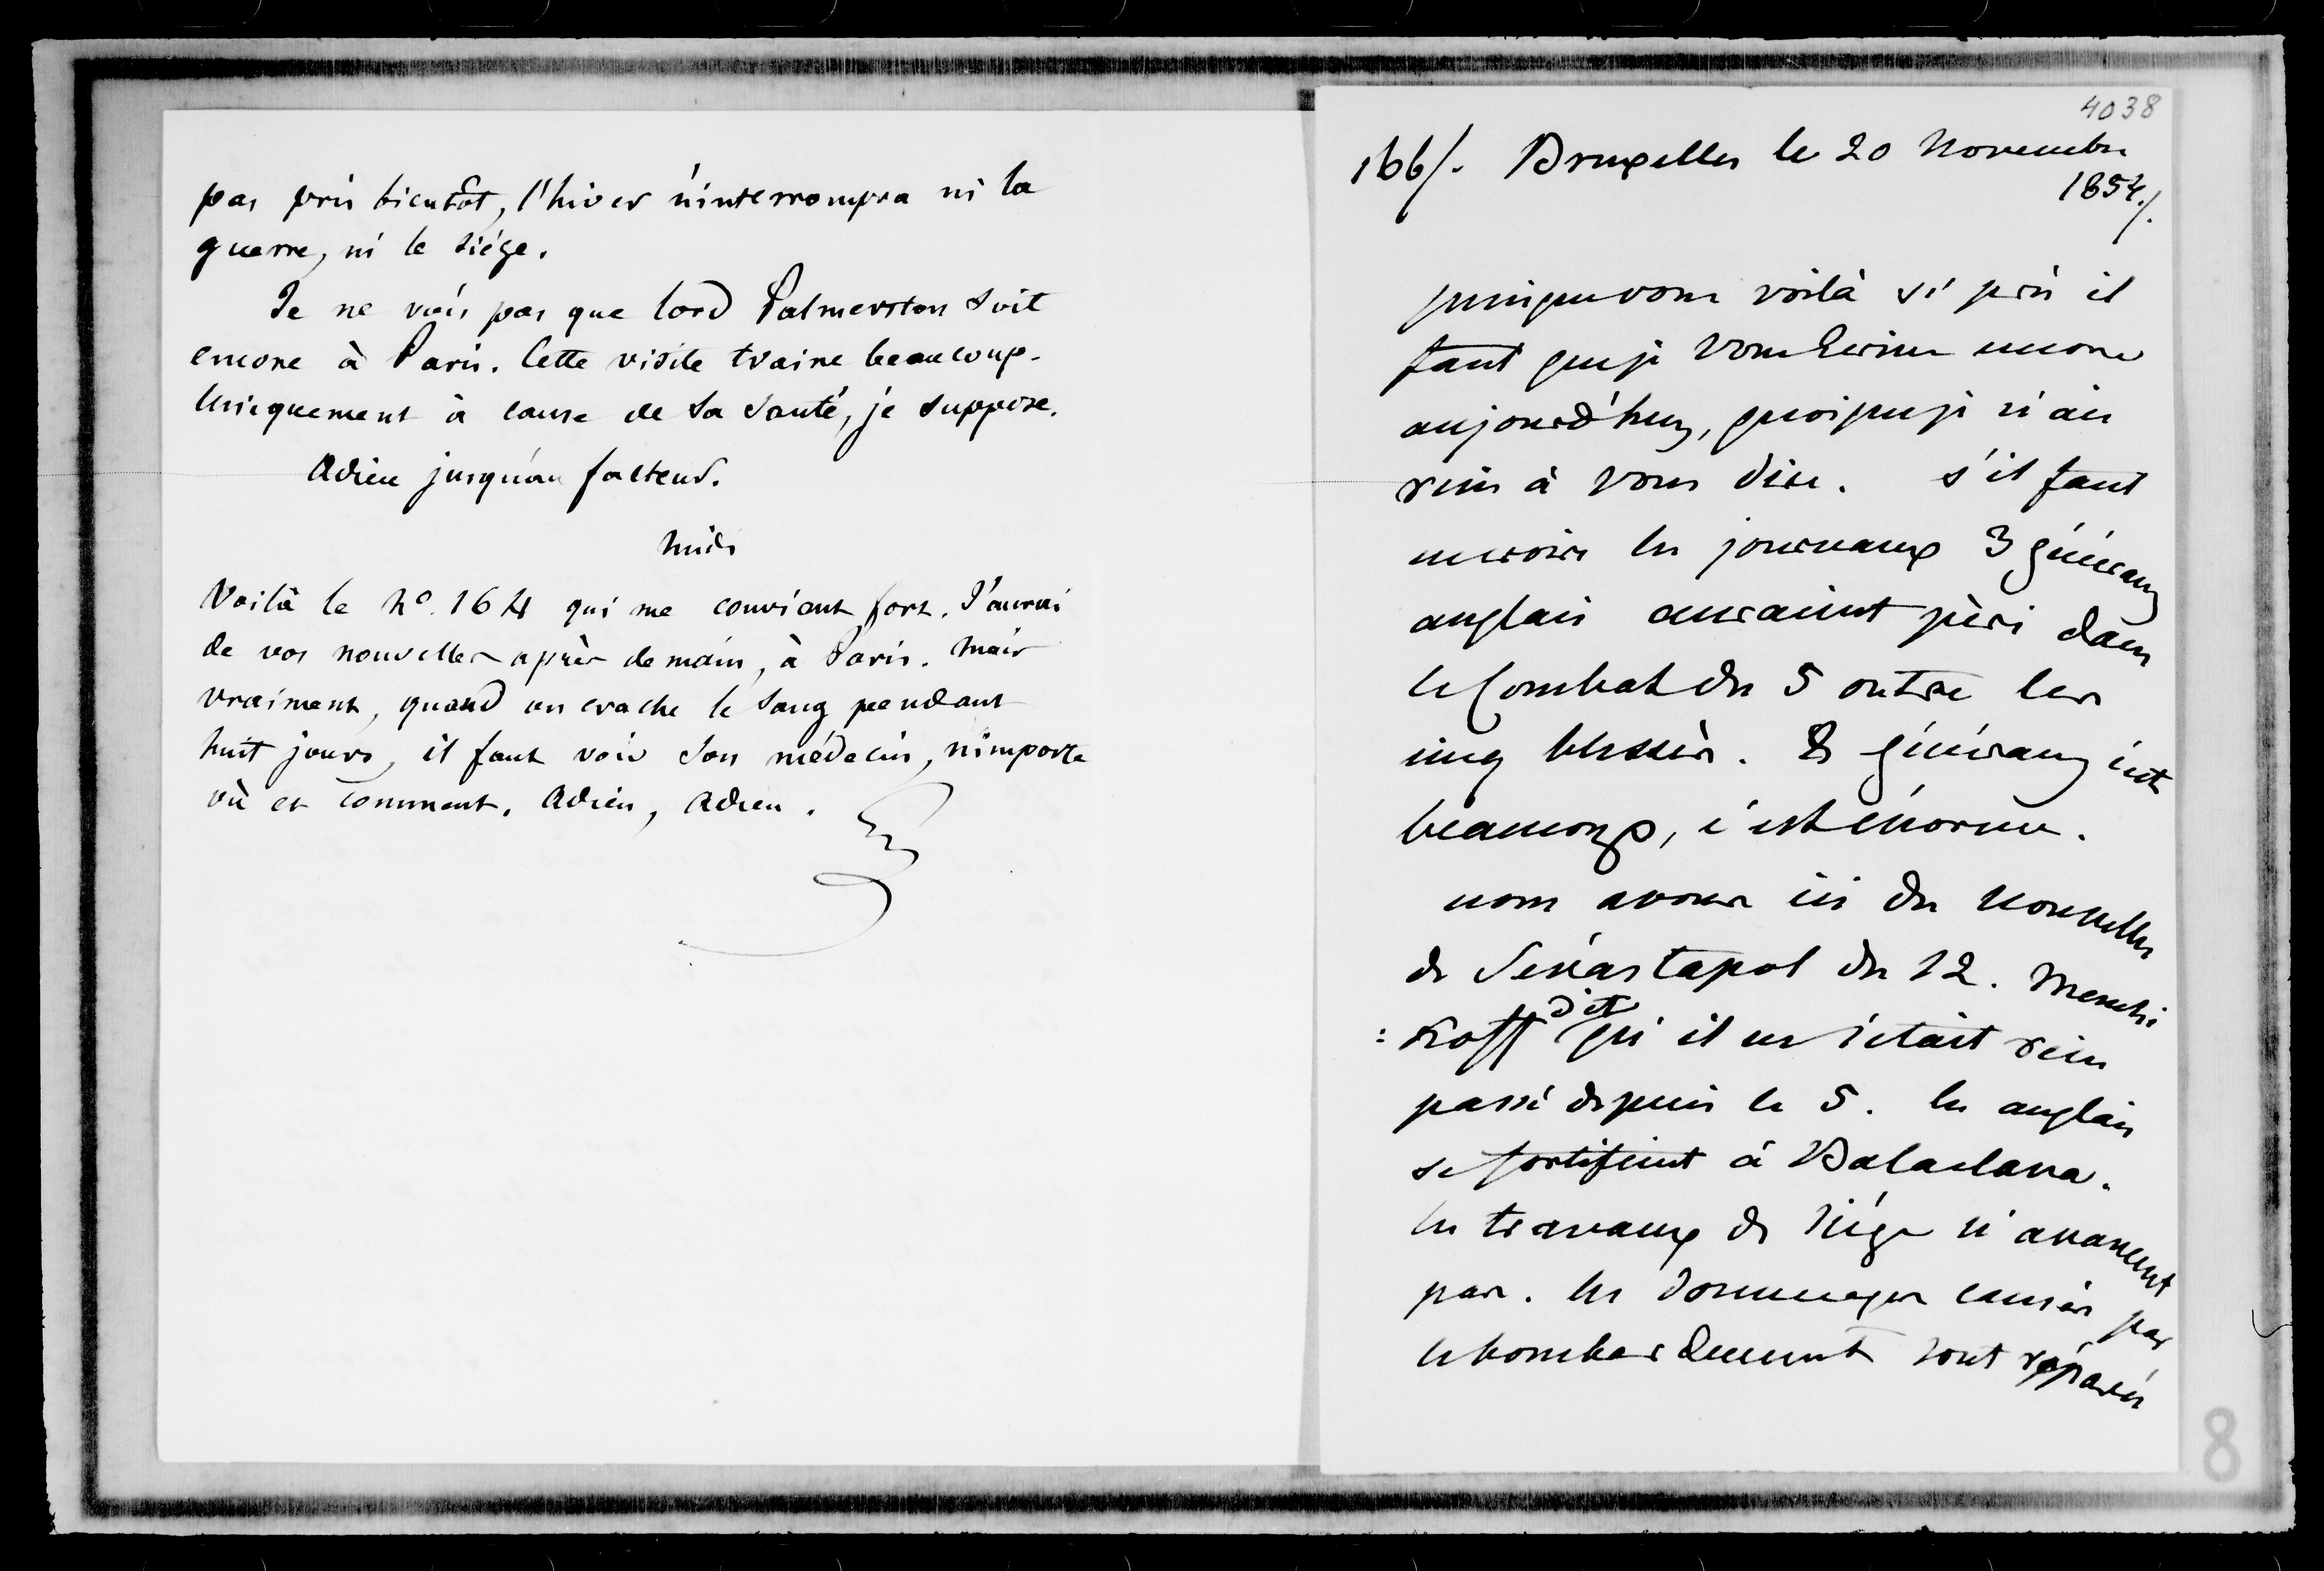 pas pris bientôt, l'hiver n'interrompra ni la
guerre, ni le siége.
Je ne vois pas que lord Palmerston soit
encore à Paris. Cette visite traine beaucoup.
Uniquement à cause de sa santé, je suppose.
Adieu jusqu'au facteur.
Midi
Voilà le no. 164 qui me convient fort. J'aurai
de vos nouvelles après demain, à Paris. Mais
vraiment, quand on crache le sang pendant
huit jours, il faut voir son médecin, n'importe
où et comment. Adieu, Adieu.
4038
166/. Bruxelles le 20 Novembre
1854./.
puisque vous voilà si près il
faut que je vous écrive encore
aujourd'huy, quoique je n'aie
rien à vous dire. s'il faut
en croire les journaux 3 généraux
anglais auraient pèri dans
le Combat du 5 outre les
cinq blessès. 8 généraux c'est
beaucoup, c'est énorme.
nous avons ici des nouvelles
de Sévastapol du 12. Menchi
=koff dit qu'il ne s'etait rien
passé depuis le 5. les anglais
se fortifient à Balaclava.
les travaux de siége n'avancent
pas. les dommages causés par
le bombardement sont réparés
8